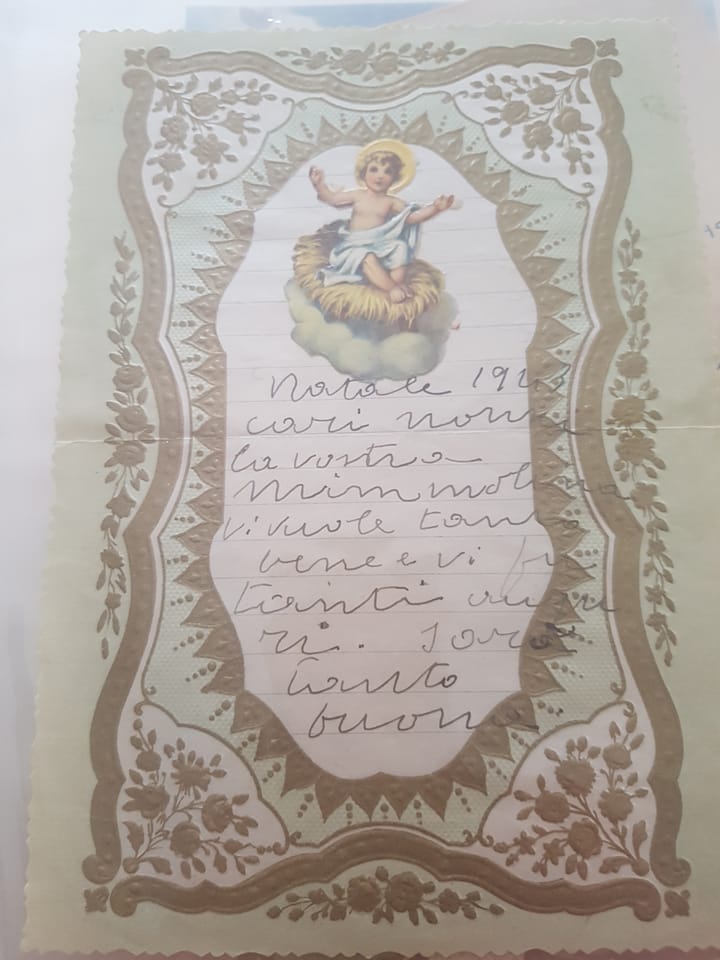 Natale 1943
cari nonni
la vostra
Mimmolina
vi vuole tanto
bene e vi fa
tanti augu
ri. Sarò
tanto
buona.